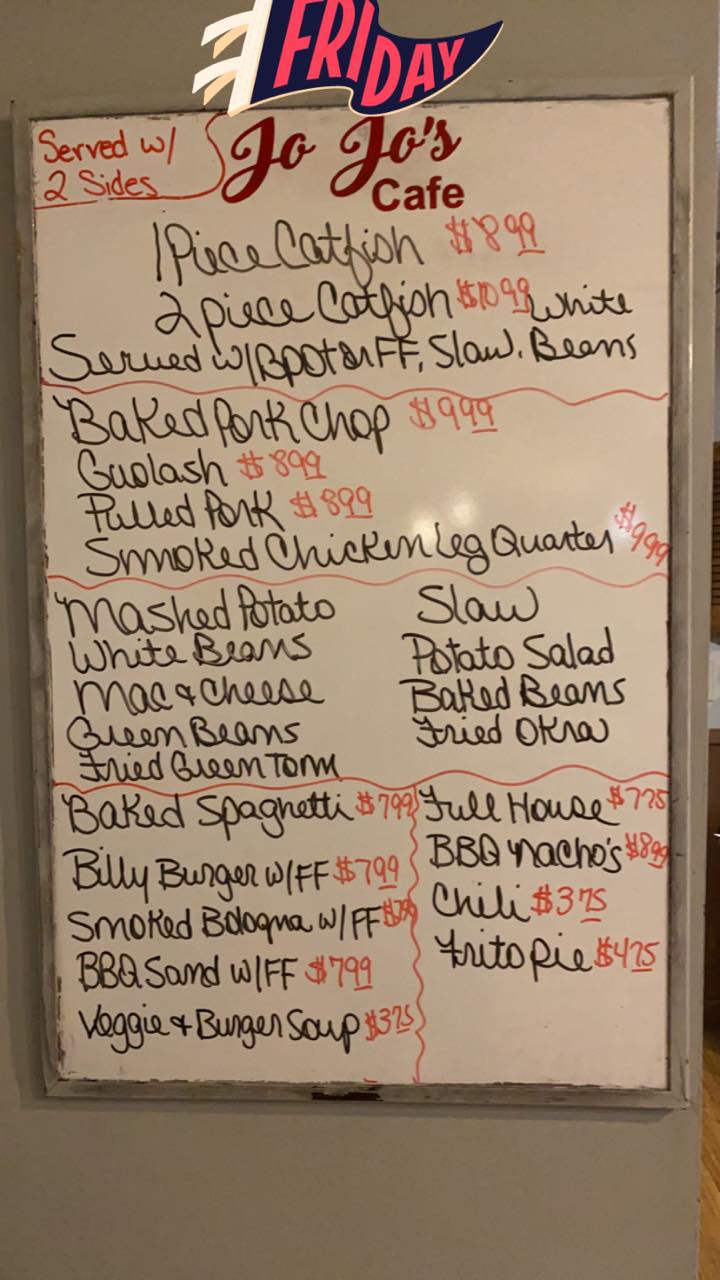 FRIDAY
Served w/
2 Sides
Jo Jo's
Cafe
1 Piece Catfish $8.99
2 piece Catfish $10.99 White
Served w/BPot or FF, Slaw, Beans
Baked Pork Chop $9.99
Guolash $8.99
Pulled Pork $8.99
Smoked Chicken Leg Quarter $9.99
Mashed Potato
White Beans
Mac & Cheese
Green Beans
Fried Green Tom
Slaw
Potato Salad
Baked Beans
Fried Okra
Baked Spaghetti $7.99
Billy Burger w/FF $7.99
Smoked Bologna w/FF
BBQ Sand w/FF $7.99
Veggie & Burger Soup $3.75
Full House $7.75
BBQ Nacho's $8.99
Chili $3.75
Frito Pie $4.75